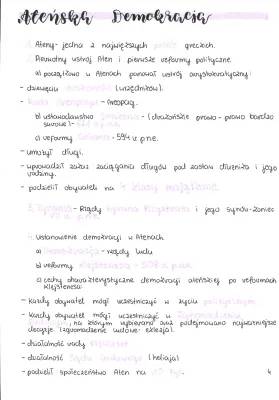 Ateńska Demokracja
1. Ateny - jedna z największych polis greckich.
2. Pierwotny ustrój Aten i pierwsze reformy polityczne
a) początkowo w Atenach panował ustrój arystokratyczny:
- dziewięciu archontów (urzędników).
- Rada Areopagu - Areopag.
b) ustawodawstwo (drakońskie prawo - prawo bardzo
surowe) - r. p.n.e.
c) reformy Solona - 594 r. p.n.e.
- umorzył długi.
- wprowadził zakaz zaciągania długów pod zastaw dłużnika i jego
rodziny.
- podzielił obywateli na 4 klasy majątkowe.
3. Tyrania - Rządy tyrana Pizystrata i jego synów - koniec
VI w. p.n.e.
4. Ustanowienie demokracji w Atenach
a) Demokracja - rządy ludu
b) reformy Klejstenesa - 508 r. p.n.e.
c) cechy charakterystyczne demokracji ateńskiej po reformach
Klejstenesa:
- każdy obywatel mógł uczestniczyć w życiu politycznym
- każdy obywatel mógł uczestniczyć w Zgromadzeniu
na którym wybierano oraz podejmowano najważniejsze
decyzje (zgromadzenie ludowe - eklezja).
- działalność rady
- działalność Sądu Ludowego (heliaja)
- podzielił społeczeństwo Aten na
4